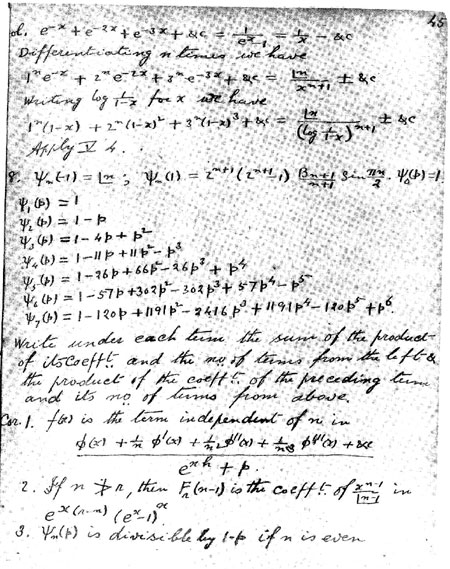 45
ol. e^{-x} + e^{-2x} + e^{-3x} + &c = \frac{1}{e^x-1} = \frac{1}{x} - &c
Differentiating n times we have
1^n e^{-x} + 2^n e^{-2x} + 3^n e^{-3x} + &c = \frac{|n}{x^{n+1}} ± &c
Writing log \frac{1}{1-x} for x we have
1^n(1-x) + 2^n(1-x)^2 + 3^n(1-x)^3 + &c = \frac{|n}{(log \frac{1}{1-x})^{n+1}} ± &c
Apply V 4.
8. ψ_n(-1) = |n ; ψ_n(1) = 2^{n+1}(2^{n+1}-1) \frac{B_{n+1}}{n+1} Sin \frac{πn}{2}. ψ_0(p)=1
ψ_1(p) = 1
ψ_2(p) = 1-p
ψ_3(p) = 1-4p+p^2
ψ_4(p) = 1-11p+11p^2-p^3
ψ_5(p) = 1-26p+66p^2-26p^3+p^4
ψ_6(p) = 1-57p+302p^2-302p^3+57p^4-p^5
ψ_7(p) = 1-120p+1191p^2-2416p^3+1191p^4-120p^5+p^6.
Write under each term the sum of the product
of its coefft. and the no. of terms from the left &
the product of the coefft. of the preceding term
and its no. of terms from above.
Cor. 1. f(x) is the term independent of n in
\frac{φ(x) + \frac{1}{n} φ'(x) + \frac{1}{n^2} φ''(x) + \frac{1}{n^3} φ'''(x) + &c}{e^{xh} + p.}
2. If n ≯ r, then F_r(n-1) is the coefft. of \frac{x^{n-1}}{|n-1} in
e^{x(r-n)} (e^x-1)^x
3. ψ_n(p) is divisible by 1-p if n is even